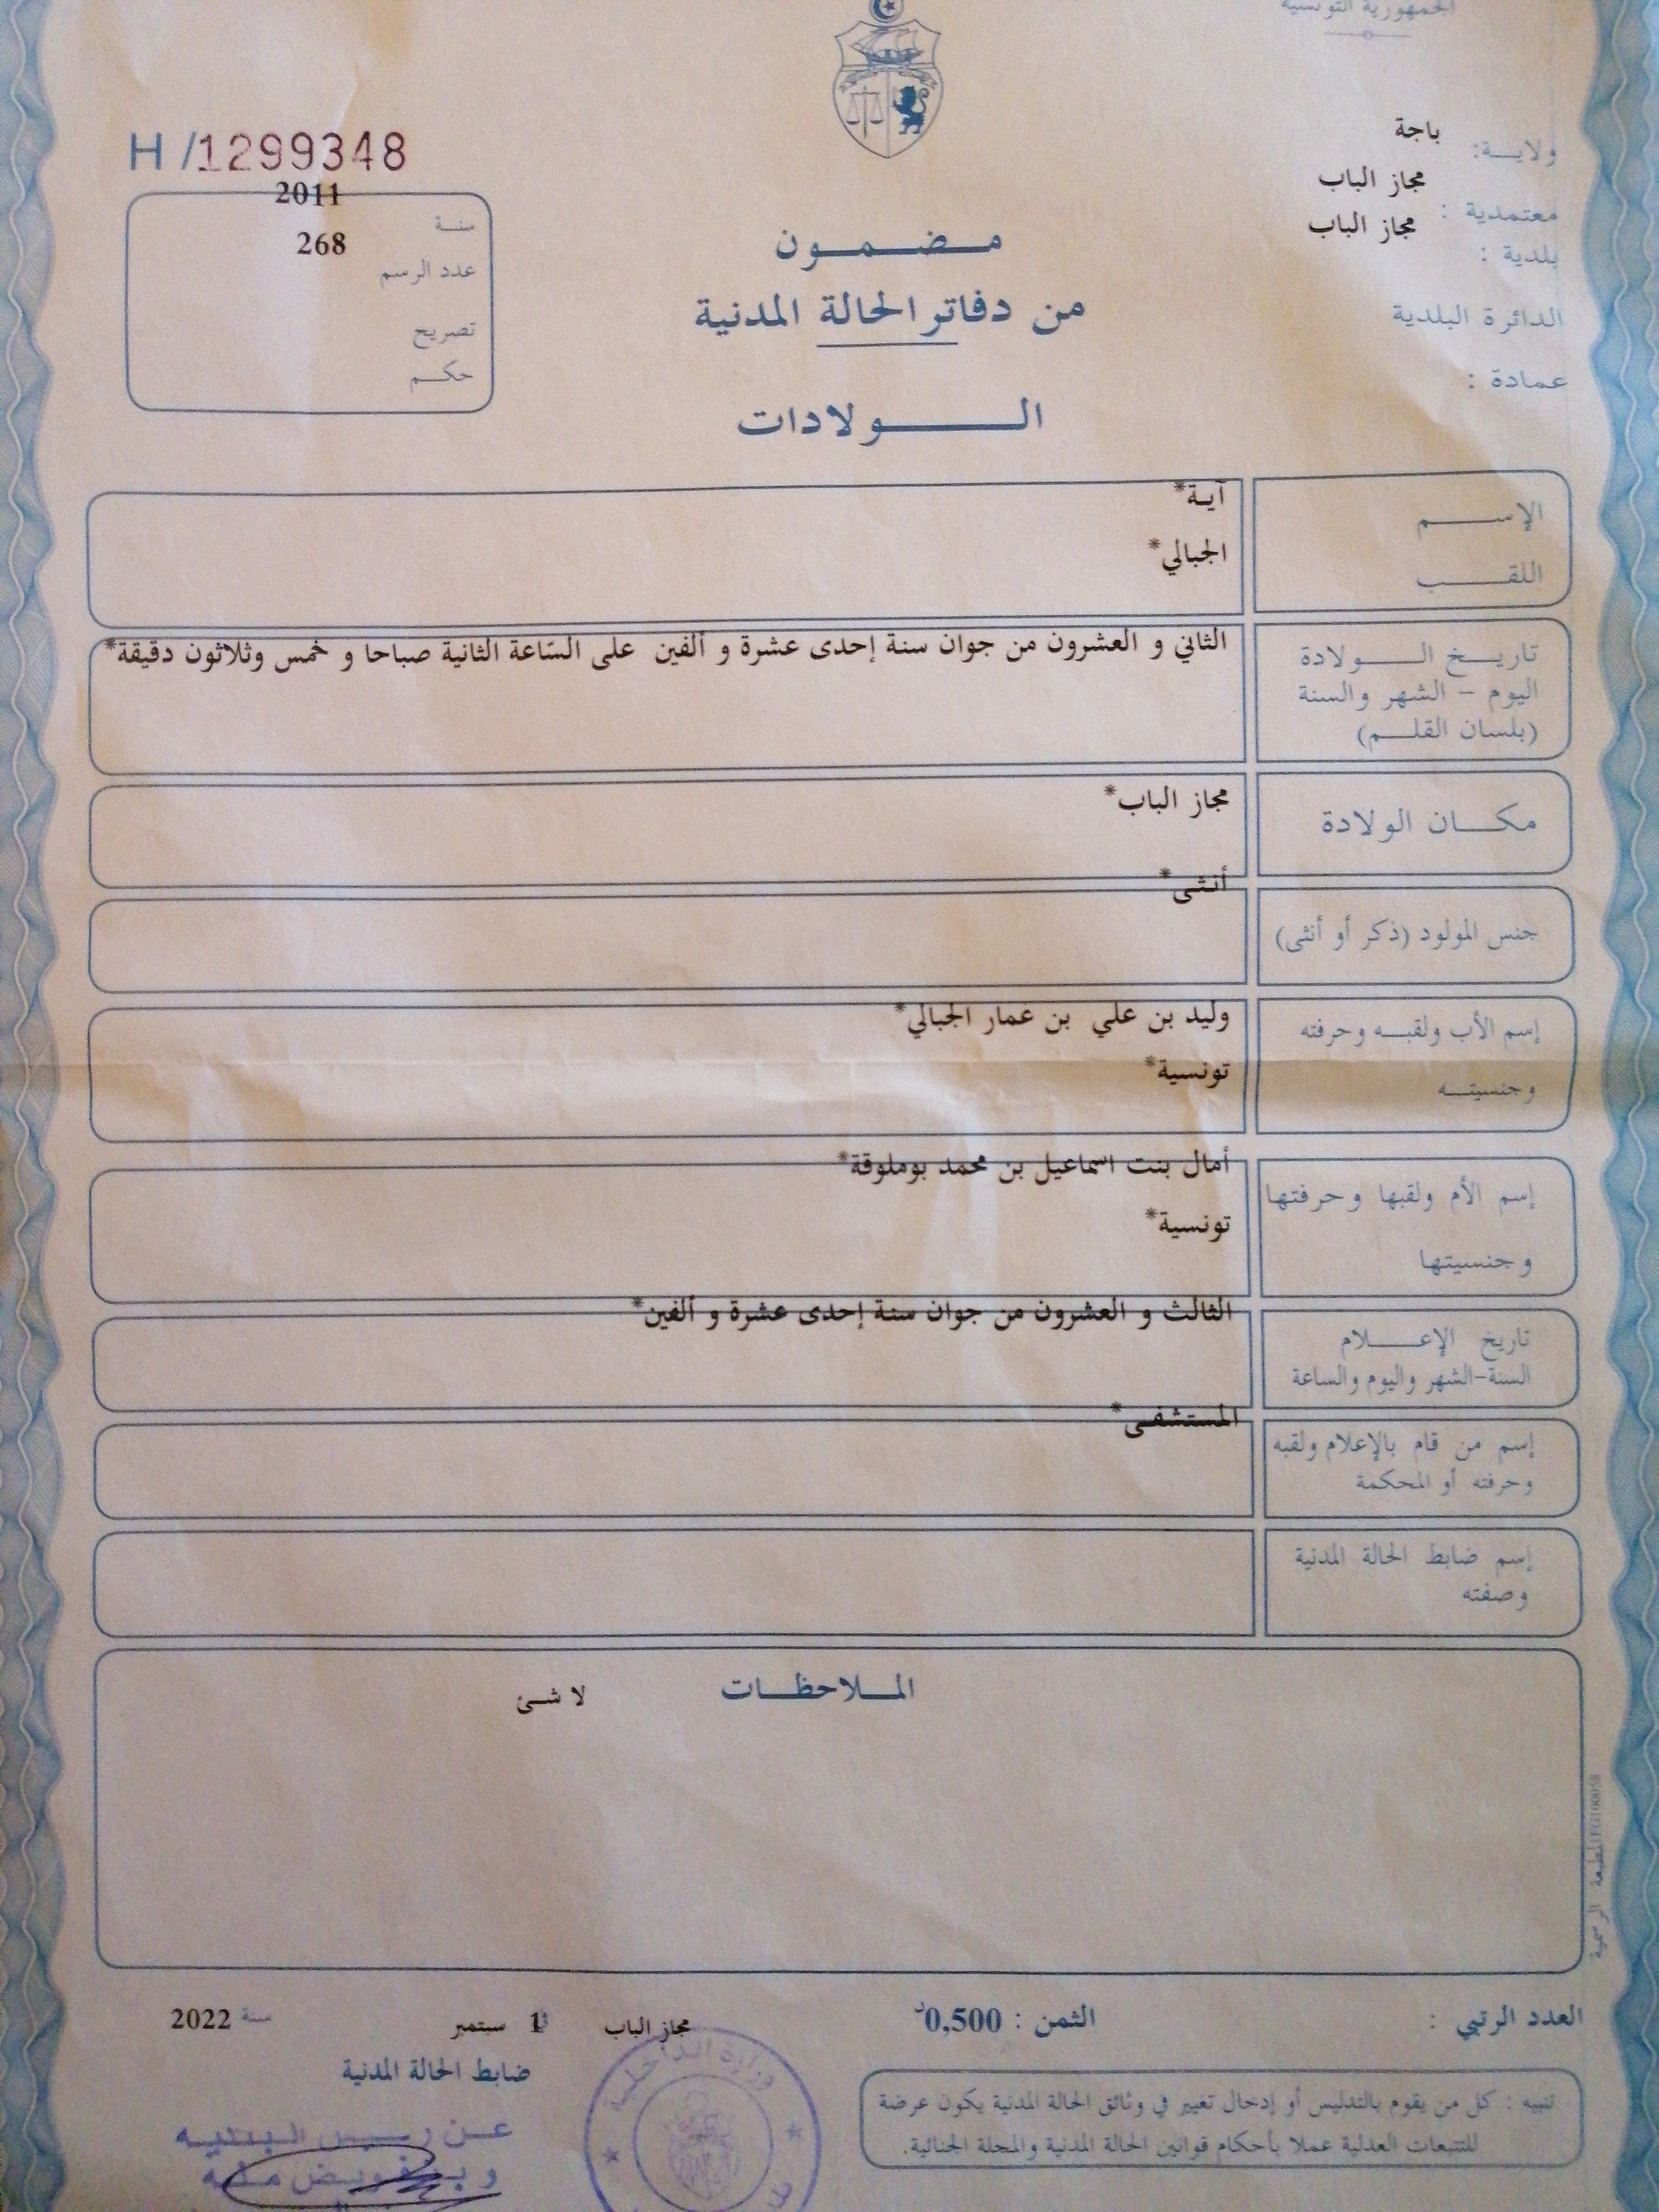 الجمهورية التونسية
ولايـــة: باجة
معتمدية : مجاز الباب
بلدية : مجاز الباب
الدائرة البلدية
عمادة :
H/1299348
سنـة 2011
عدد الرسم 268
تصريح
حكـــم
مـضـمـون
من دفاتر الحالة المدنية
الـــولادات
الإســـم آية*
اللقـــب الجبالي*
تاريـخ الـــولادة
اليوم - الشهر والسنة
(بلسان القلـــم)
الثاني و العشرون من جوان سنة إحدى عشرة و ألفين على السّاعة الثانية صباحا و خمس وثلاثون دقيقة*
مكـــان الولادة مجاز الباب*
جنس المولود (ذكر أو أنثى) أنثى*
إسم الأب ولقبـه وحرفته وليد بن علي بن عمار الجبالي*
وجنسيتـــه تونسية*
إسم الأم ولقبها وحرفتها أمال بنت اسماعيل بن محمد بوملوقة*
وجنسيتها تونسية*
تاريخ الإعـــلام
السنة-الشهر واليوم والساعة
الثالث و العشرون من جوان سنة إحدى عشرة و ألفين*
إسم من قام بالإعلام ولقبه
وحرفته أو المحكمة
المستشفى*
إسم ضابط الحالة المدنية
وصفته
المـــلاحظـــات
لا شئ
العدد الرتبي :
الثمن : 0,500د
مجاز الباب 1 سبتمبر سنة 2022
ضابط الحالة المدنية
تنبيه : كل من يقوم بالتدليس أو إدخال تغيير في وثائق الحالة المدنية يكون عرضة
للتتبعات العدلية عملا بأحكام قوانين الحالة المدنية والمجلة الجنائية.
وزارة الداخلية
عـن رئيس البلديـة
وبتفويض منه
المطبعة الرسمية